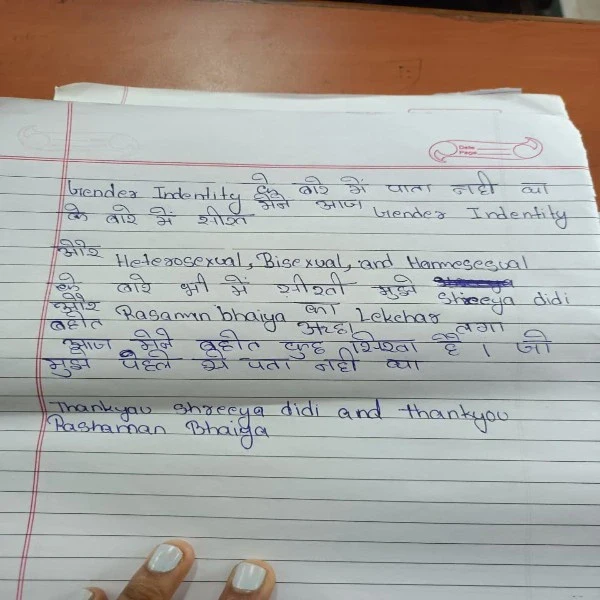 Date
Page
Gender Indentity के बारे में पाता नही था
के बारे में शीख मैने आज Gender Indentity
और Heterosexual, Bisexual, and Hamnesesual
के बारे भी में शीखी मुझे shreeya didi
और Rasamn bhaiya का Lekchar
बहोत अच्छा लगा
आज मैने बहोत कुछ शिखा है । जो
मुझे पेहले से पता नही था
Thankyou shreeya didi and thankyou
Rashaman Bhaiya